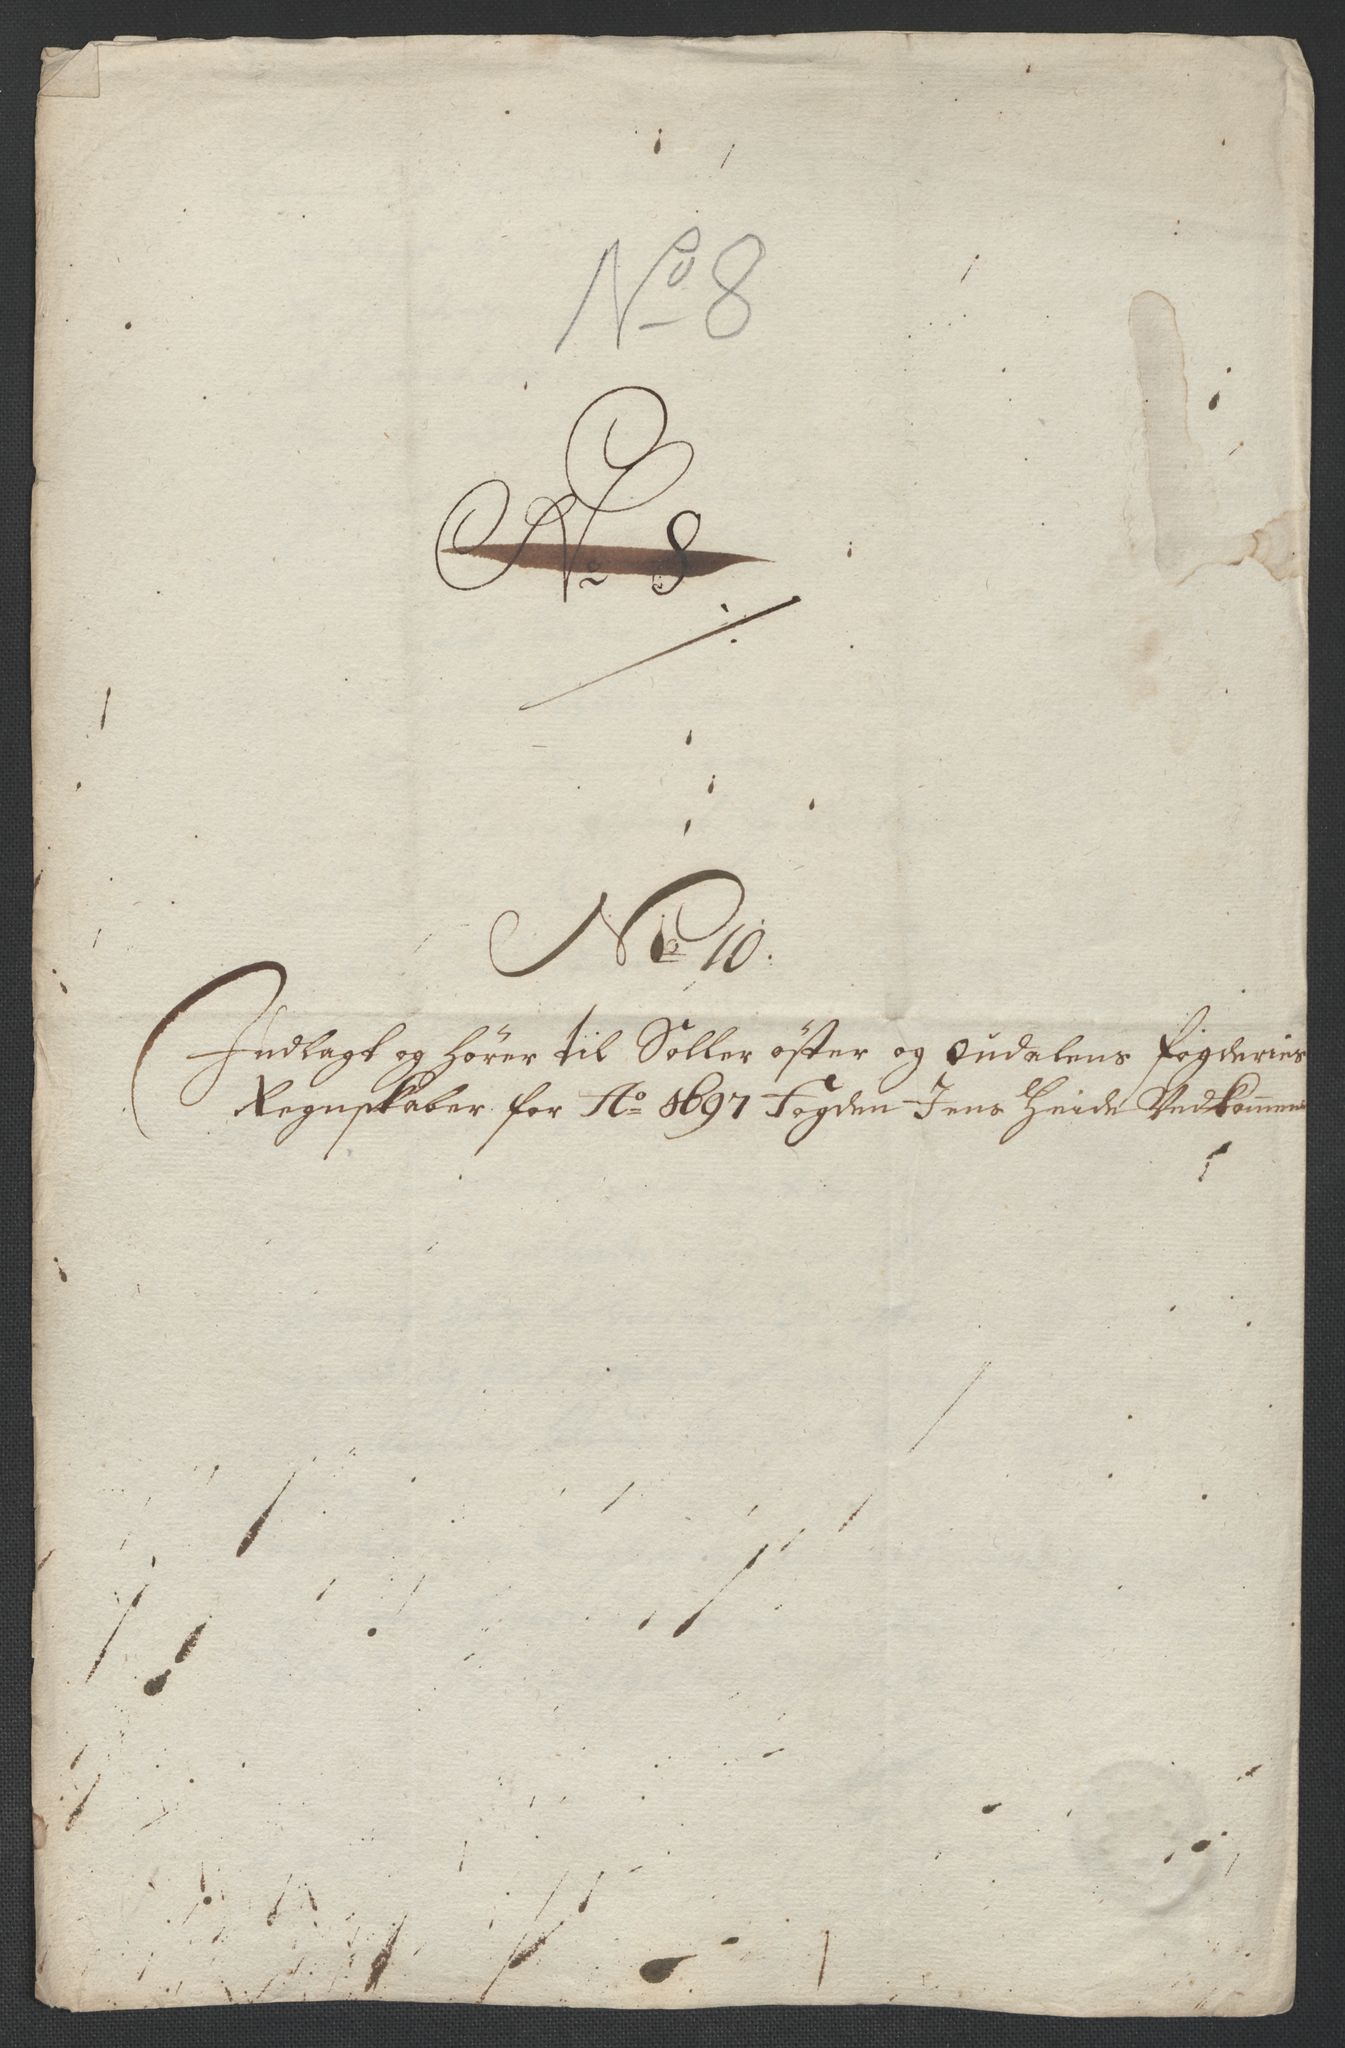 No 8
No 8
No 10.
Indlagt og hører til Soller öster og oudalens fogderies
Regnskaber for Ao 1697 Fogden Jens Heide Vedkommen